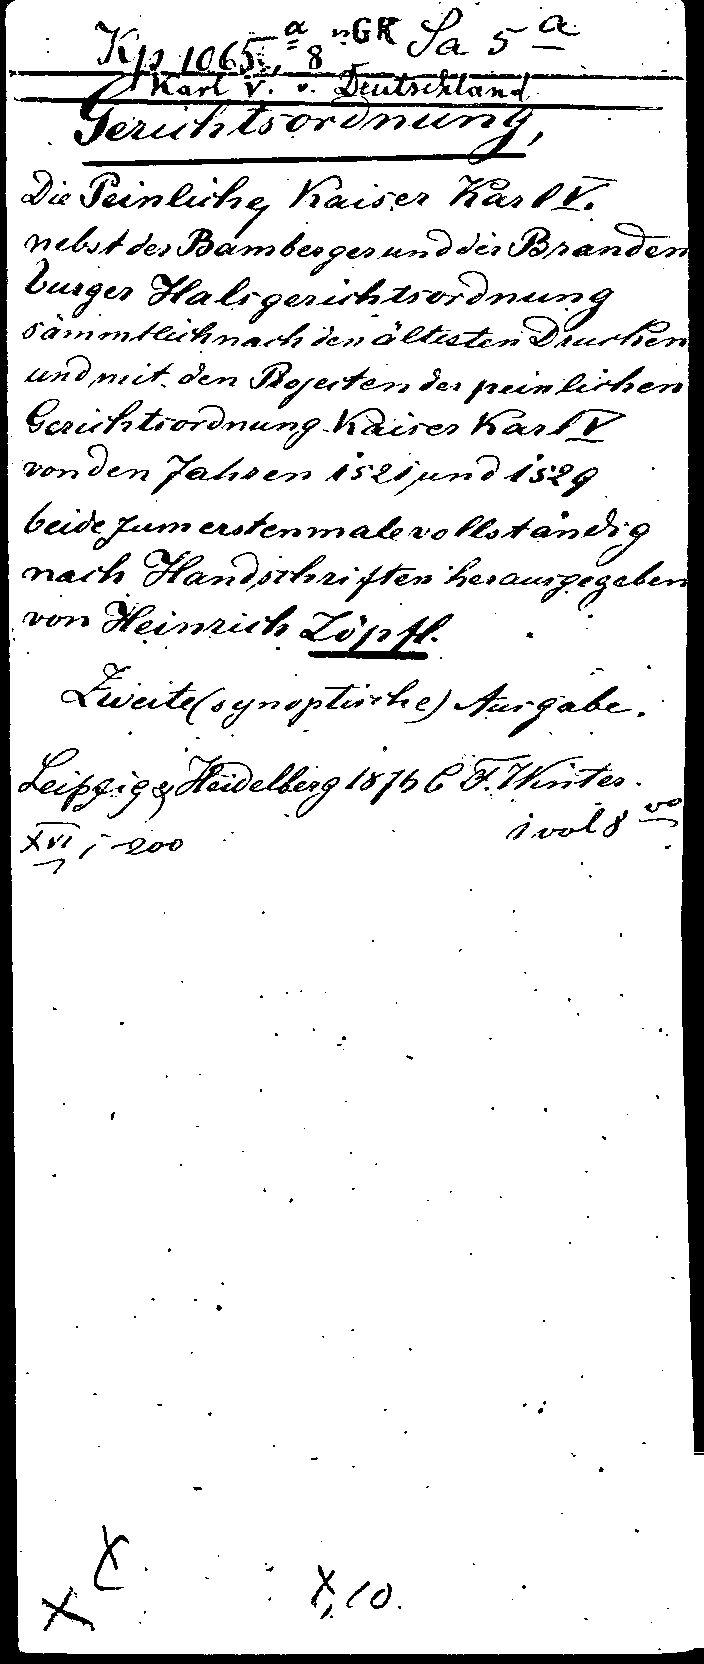 Kp 1065, a 8 nGR Sa 5 a
Karl V. v. Deutschland
Gerichtsordnung,
Die Peinliche, Kaiser Karl V.
nebst der Bamberger und der Branden
burger Halsgerichtsordnung
sämmtlich nach den ältesten Drucken
und mit den Projecten der peinlichen
Gerichtsordnung Kaiser Karl V
von den Jahren 1521 und 1529
beide zum erstenmale vollständig
nach Handschriften herausgegeben
von Heinrich Zöpfl.
Zweite (synoptische) Ausgabe.
Leipzig & Heidelberg 1876 C F. Winter.
1 vol 8 vo
XVI, 200
X
X X, 10.